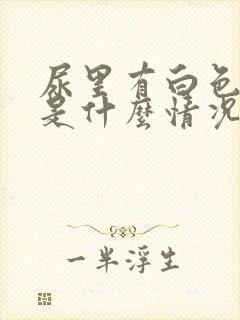 尿里有白色
是什麼情况
一半浮生